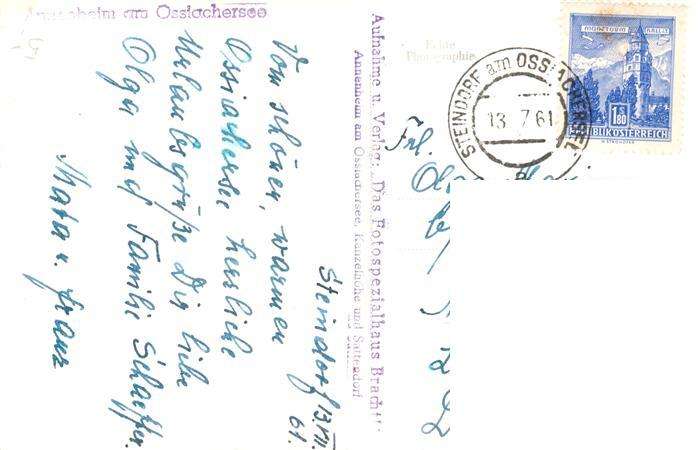 Annenheim am Ossiachersee
Steindorf 13.VII.
61.
Vom schönen, warmen
Ossiachersee herzliche
Urlaubsgrüße Dir liebe
Olga und Familie Schaeffer.
u. Franz
Aufnahme u. Verlag: „Das Fotospezialhaus
Annenheim am Ossiachersee, Kanzelhöhe und Sattendorf
Echte
Photographie
STEINDORF am OSSIACHERSEE
13.7.61
1.80
REPUBLIK ÖSTERREICH
Frl.